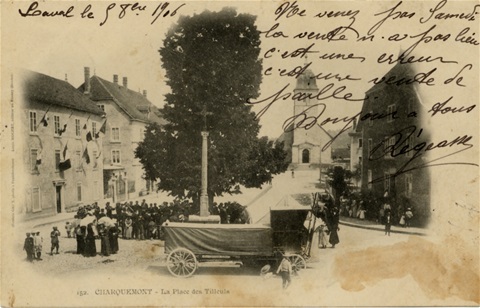 Laval le 5 8bre 1906
Ne venez pas Samedi
la vente n'a pas lieu
c'est une erreur
c'est une vente de
parcelle.
Bonjour à tous
152. CHARQUEMONT - La Place des Tilleuls